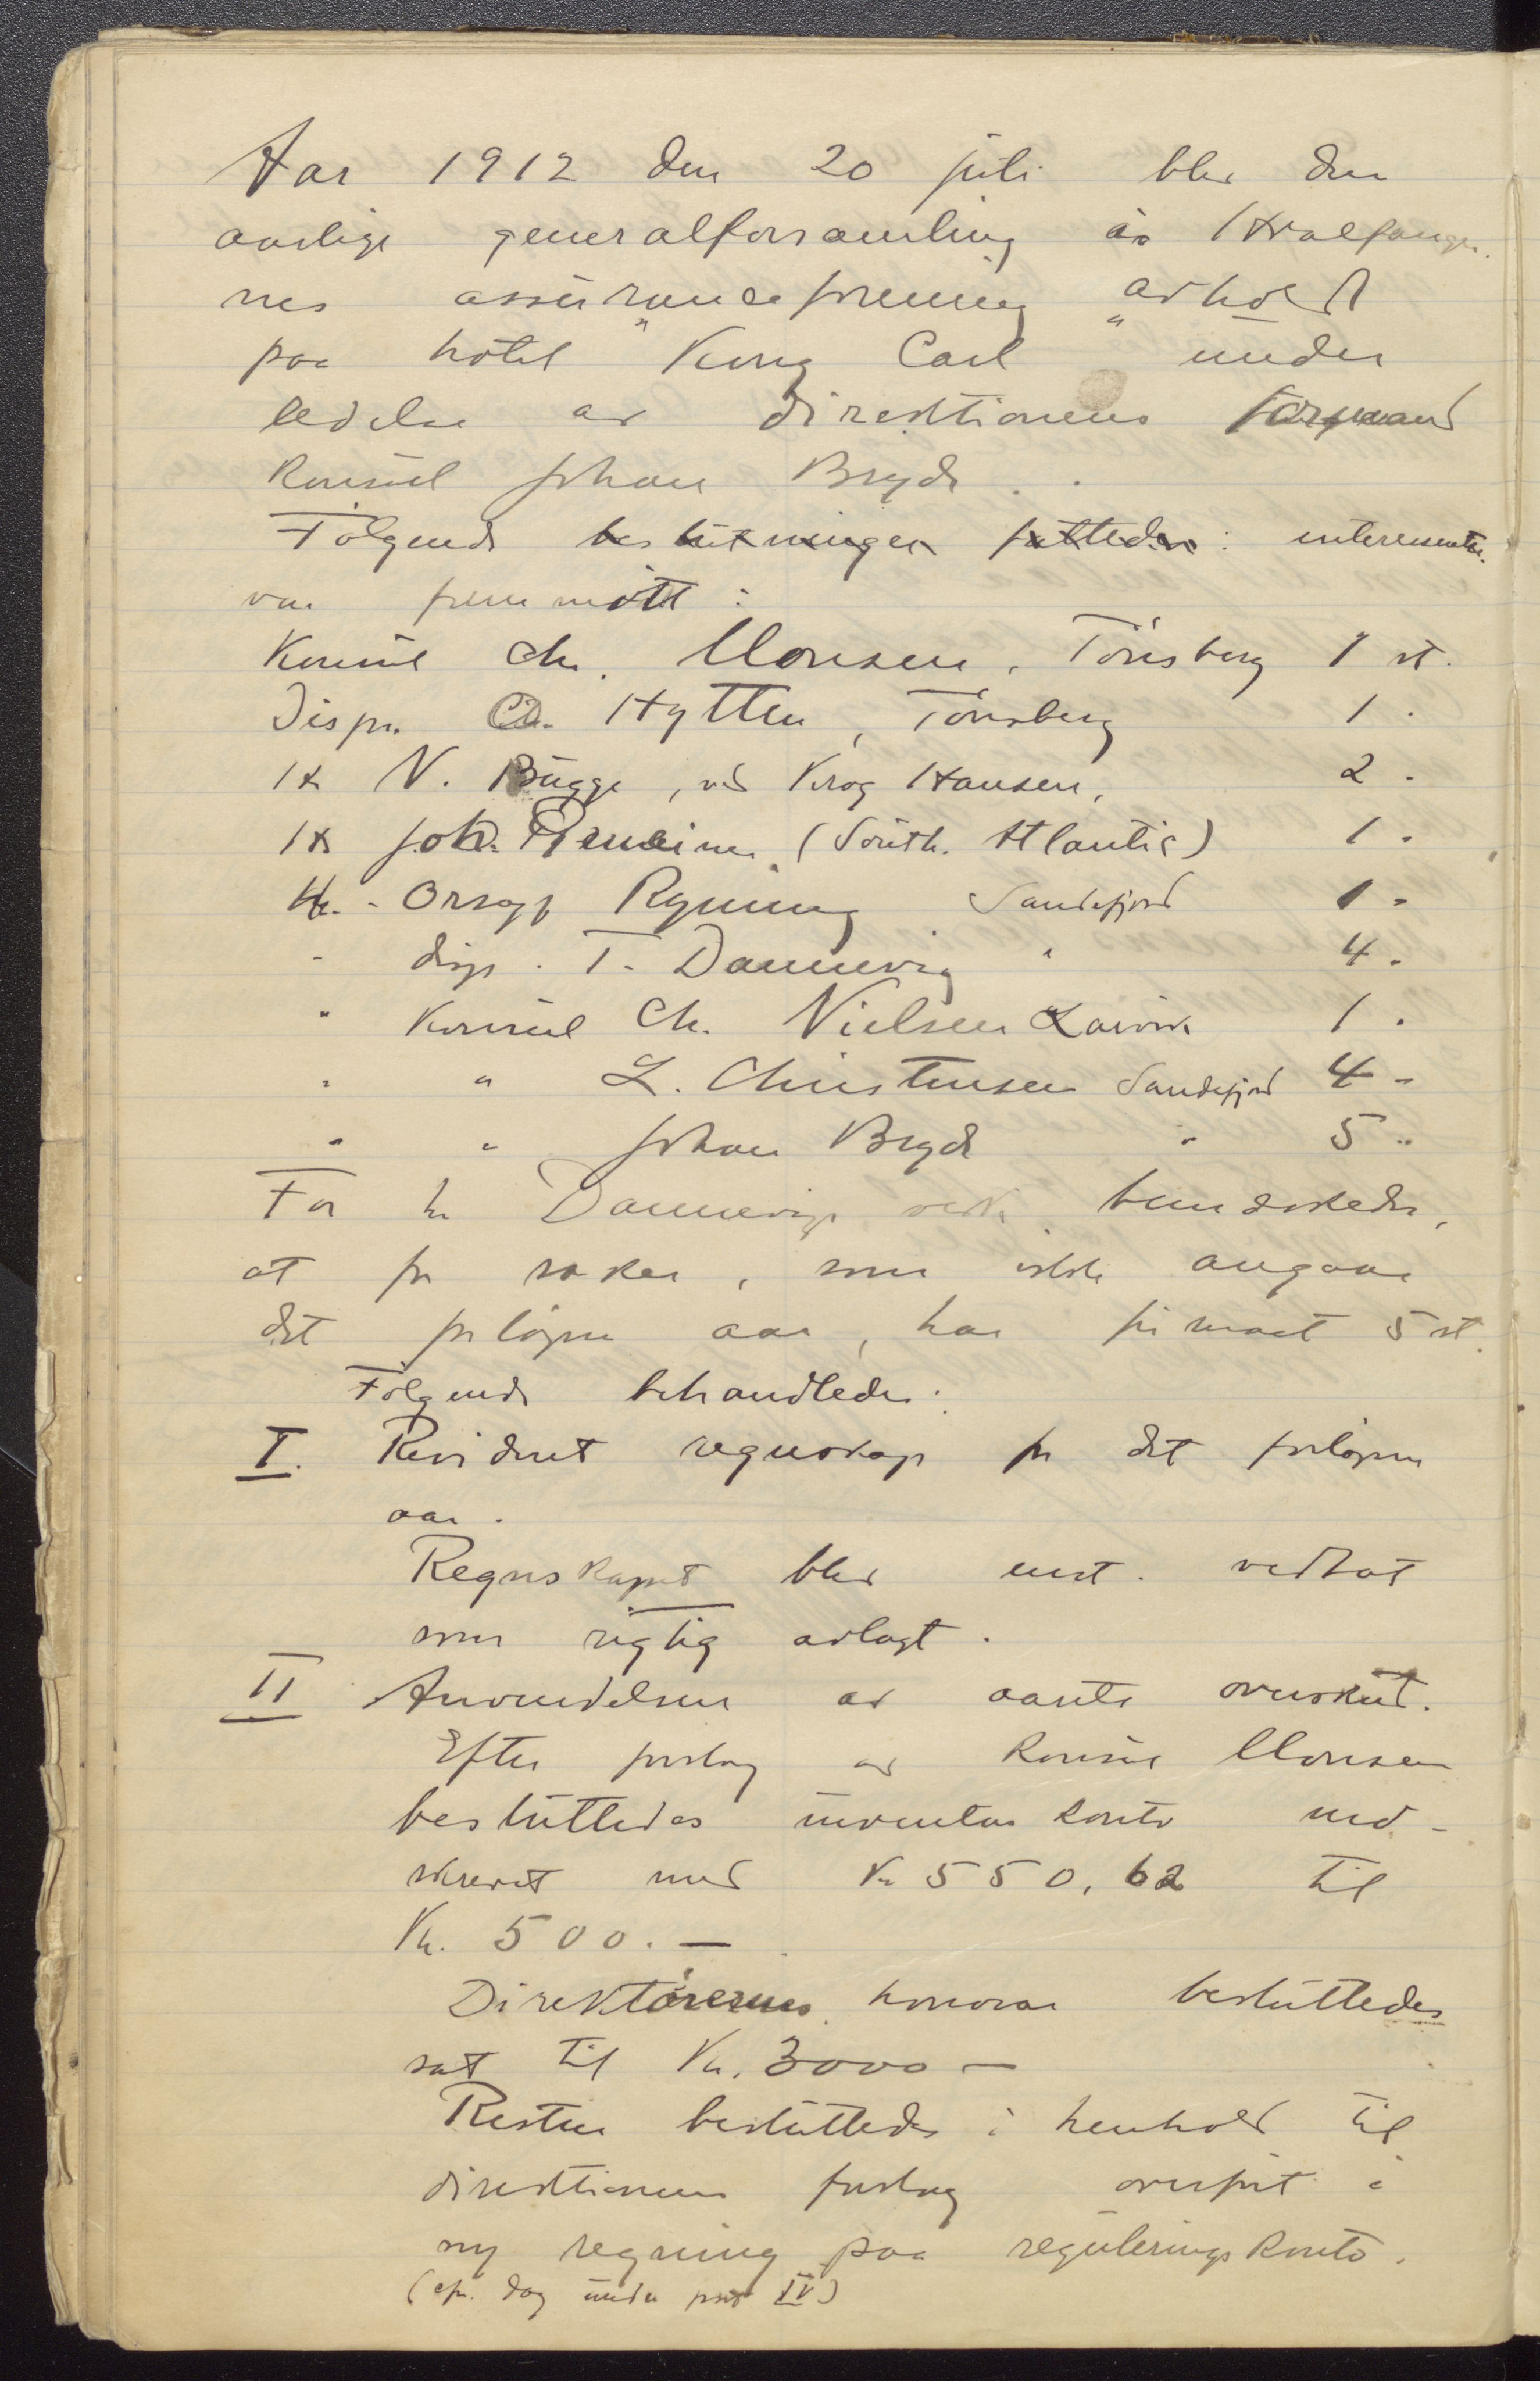 Aar 1912 den 20 juli blev den
aarlige generalforsamling av Hvalfanger-
nes assuranceforening avholdt
paa hotel "Kong Carl" under
ledelse av direktionens formand
konsul Johan Bryde.
Følgende beslutninger fattedes: interessenter
var fremmøtt:
Konsul Chr. Monsen, Tønsberg 1 st.
Disp. Chr. Hytten, Tønsberg 1 -
Hr N. Bugge, ved Krog Hansen, 2 -
Hr Joh. (South. Atlantic) 1 -
Hr. - Orsagf Ryning Sandefjord 1 -
- disp. T. Dannevig " 4 -
" konsul Chr. Nielsen Larvik 1 -
" " L. Christensen Sandefjord 4 -
" " Johan Bryde " 5 -
For hr Dannevigs bemerkedes,
at for saker, som ikke angaar
det forløpne aar, har firmaet 5 st.
Følgende behandledes:
I. Revideret regnskap for det forløpne
aar.
Regnskapet blev enst. vedtat
som rigtig avlagt.
II Anvendelsen av aarets overskud.
Efter forslag av konsul Monsen
besluttedes inventar konto ned-
skrevet med Kr 550,62 til
Kr. 500.—
Direktørernes honorar besluttedes
sat til Kr. 3000 —
Resten besluttedes i henhold til
direktionens forslag overført i
ny regning paa regulerings konto.
(cfr. dog under post IV)